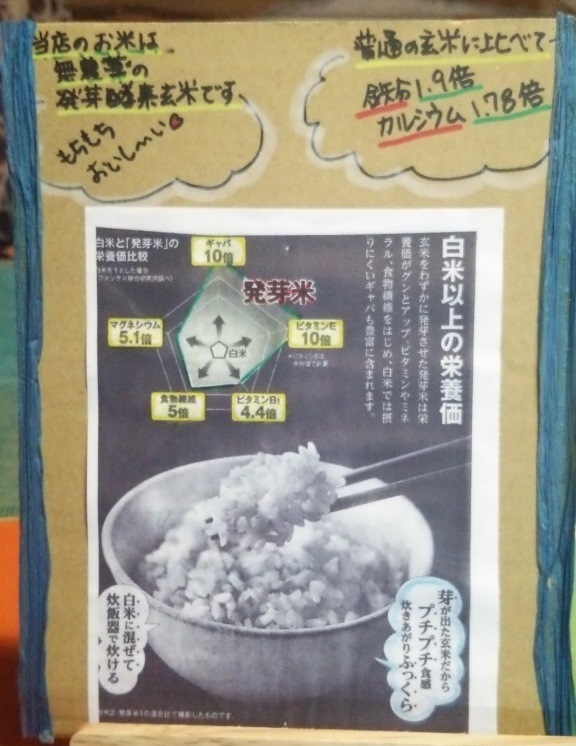 当店のお米は、
無農薬の
発芽酵素玄米です。
もちもち
おいし〜い
普通の玄米に比べて
鉄分1.9倍
カルシウム1.78倍
白米以上の栄養価
玄米をわずかに発芽させた発芽米は栄
養価がグンとアップ。ビタミンやミネ
ラル、食物繊維をはじめ、白米では摂
りにくいギャバも豊富に含まれます。
白米と「発芽米」の
栄養価比較
白米を1とした場合
ギャバ
10倍
発芽米
マグネシウム
5.1倍
ビタミンE
10倍
白米
食物繊維
5倍
ビタミンB1
4.4倍
芽が出た玄米だから
プチプチ食感
炊きあがりふっくら
白米に混ぜて
炊飯器で炊ける
白米2:発芽米1の混合比で撮影したものです